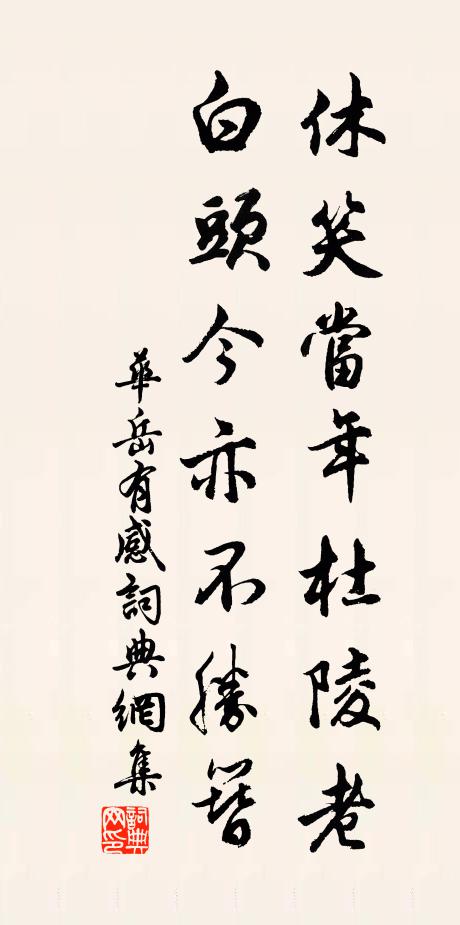 休笑當年杜陵老
白頭今亦不勝簪
華岳有感詞典網集
詞典網印